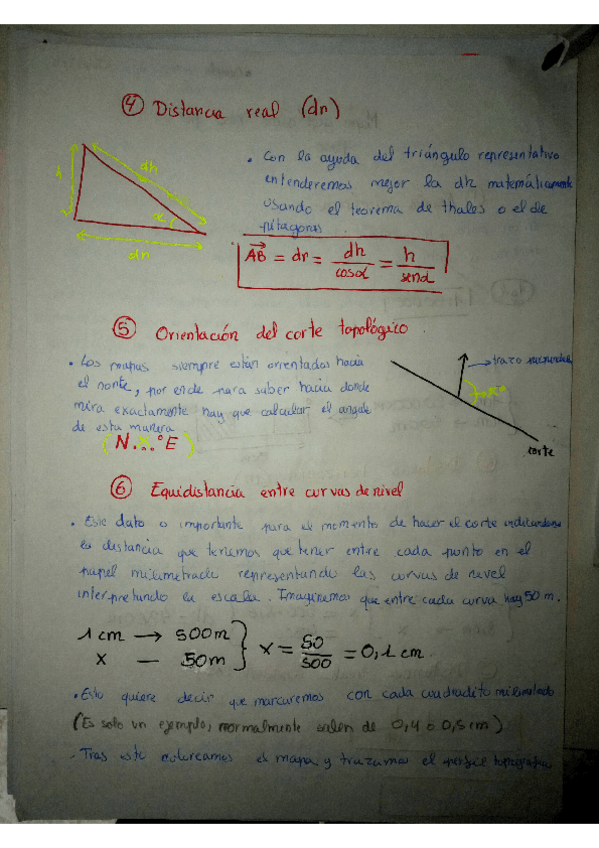 ④ Distancia real (dr)
h
dh
α
dh
• Con la ayuda del triángulo representativo
entenderemos mejor la dh matemáticamente
usando el teorema de thales o el de
pitagoras
AB = dr = dh/cosα = h/senα
⑤ Orientación del corte topológico.
• Los mapas siempre están orientados hacia
el norte, por ende para saber hacia donde
mira exactamente hay que calcular el angulo
de esta manera
(N...°E)
trazo
corte
⑥ Equidistancia entre curvas de nivel
• Este dato es importante para el momento de hacer el corte indicandonos
la distancia que tenemos que tener entre cada punto en el
papel milimetrado representando las curvas de nivel
interpretando la escala. Imaginemos que entre cada curva hay 50 m.
1 cm → 500m
x — 50m } x = 50/500 = 0,1 cm.
• Esto quiere decir que marcaremos con cada cuadradito milimetado
(Es solo un ejemplo, normalmente salen de 0,4 o 0,5 cm)
- Tras esto coloreamos el mapa y trazamos el perfil topografico